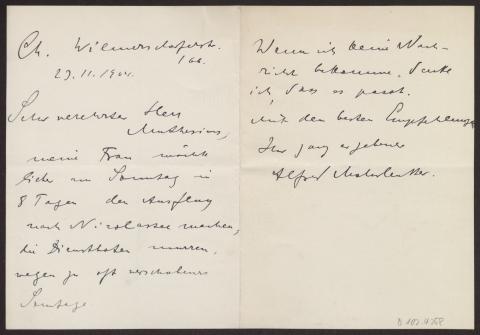 Ch. Wilmersdorferstr.
166.
29.11.1904.
Sehr verehrter Herr
Muthesius,
meine Frau möchte
lieber am Sonntag in
8 Tagen den Ausflug
nach Nicolassee machen,
die Dienstboten murren,
wegen zu oft verschobener
Sonntage
Wenn ich keine Nach-
richt bekomme, denke
ich, dass es passt.
Mit den besten Empfehlungen
Ihr ganz ergebener
Alfred